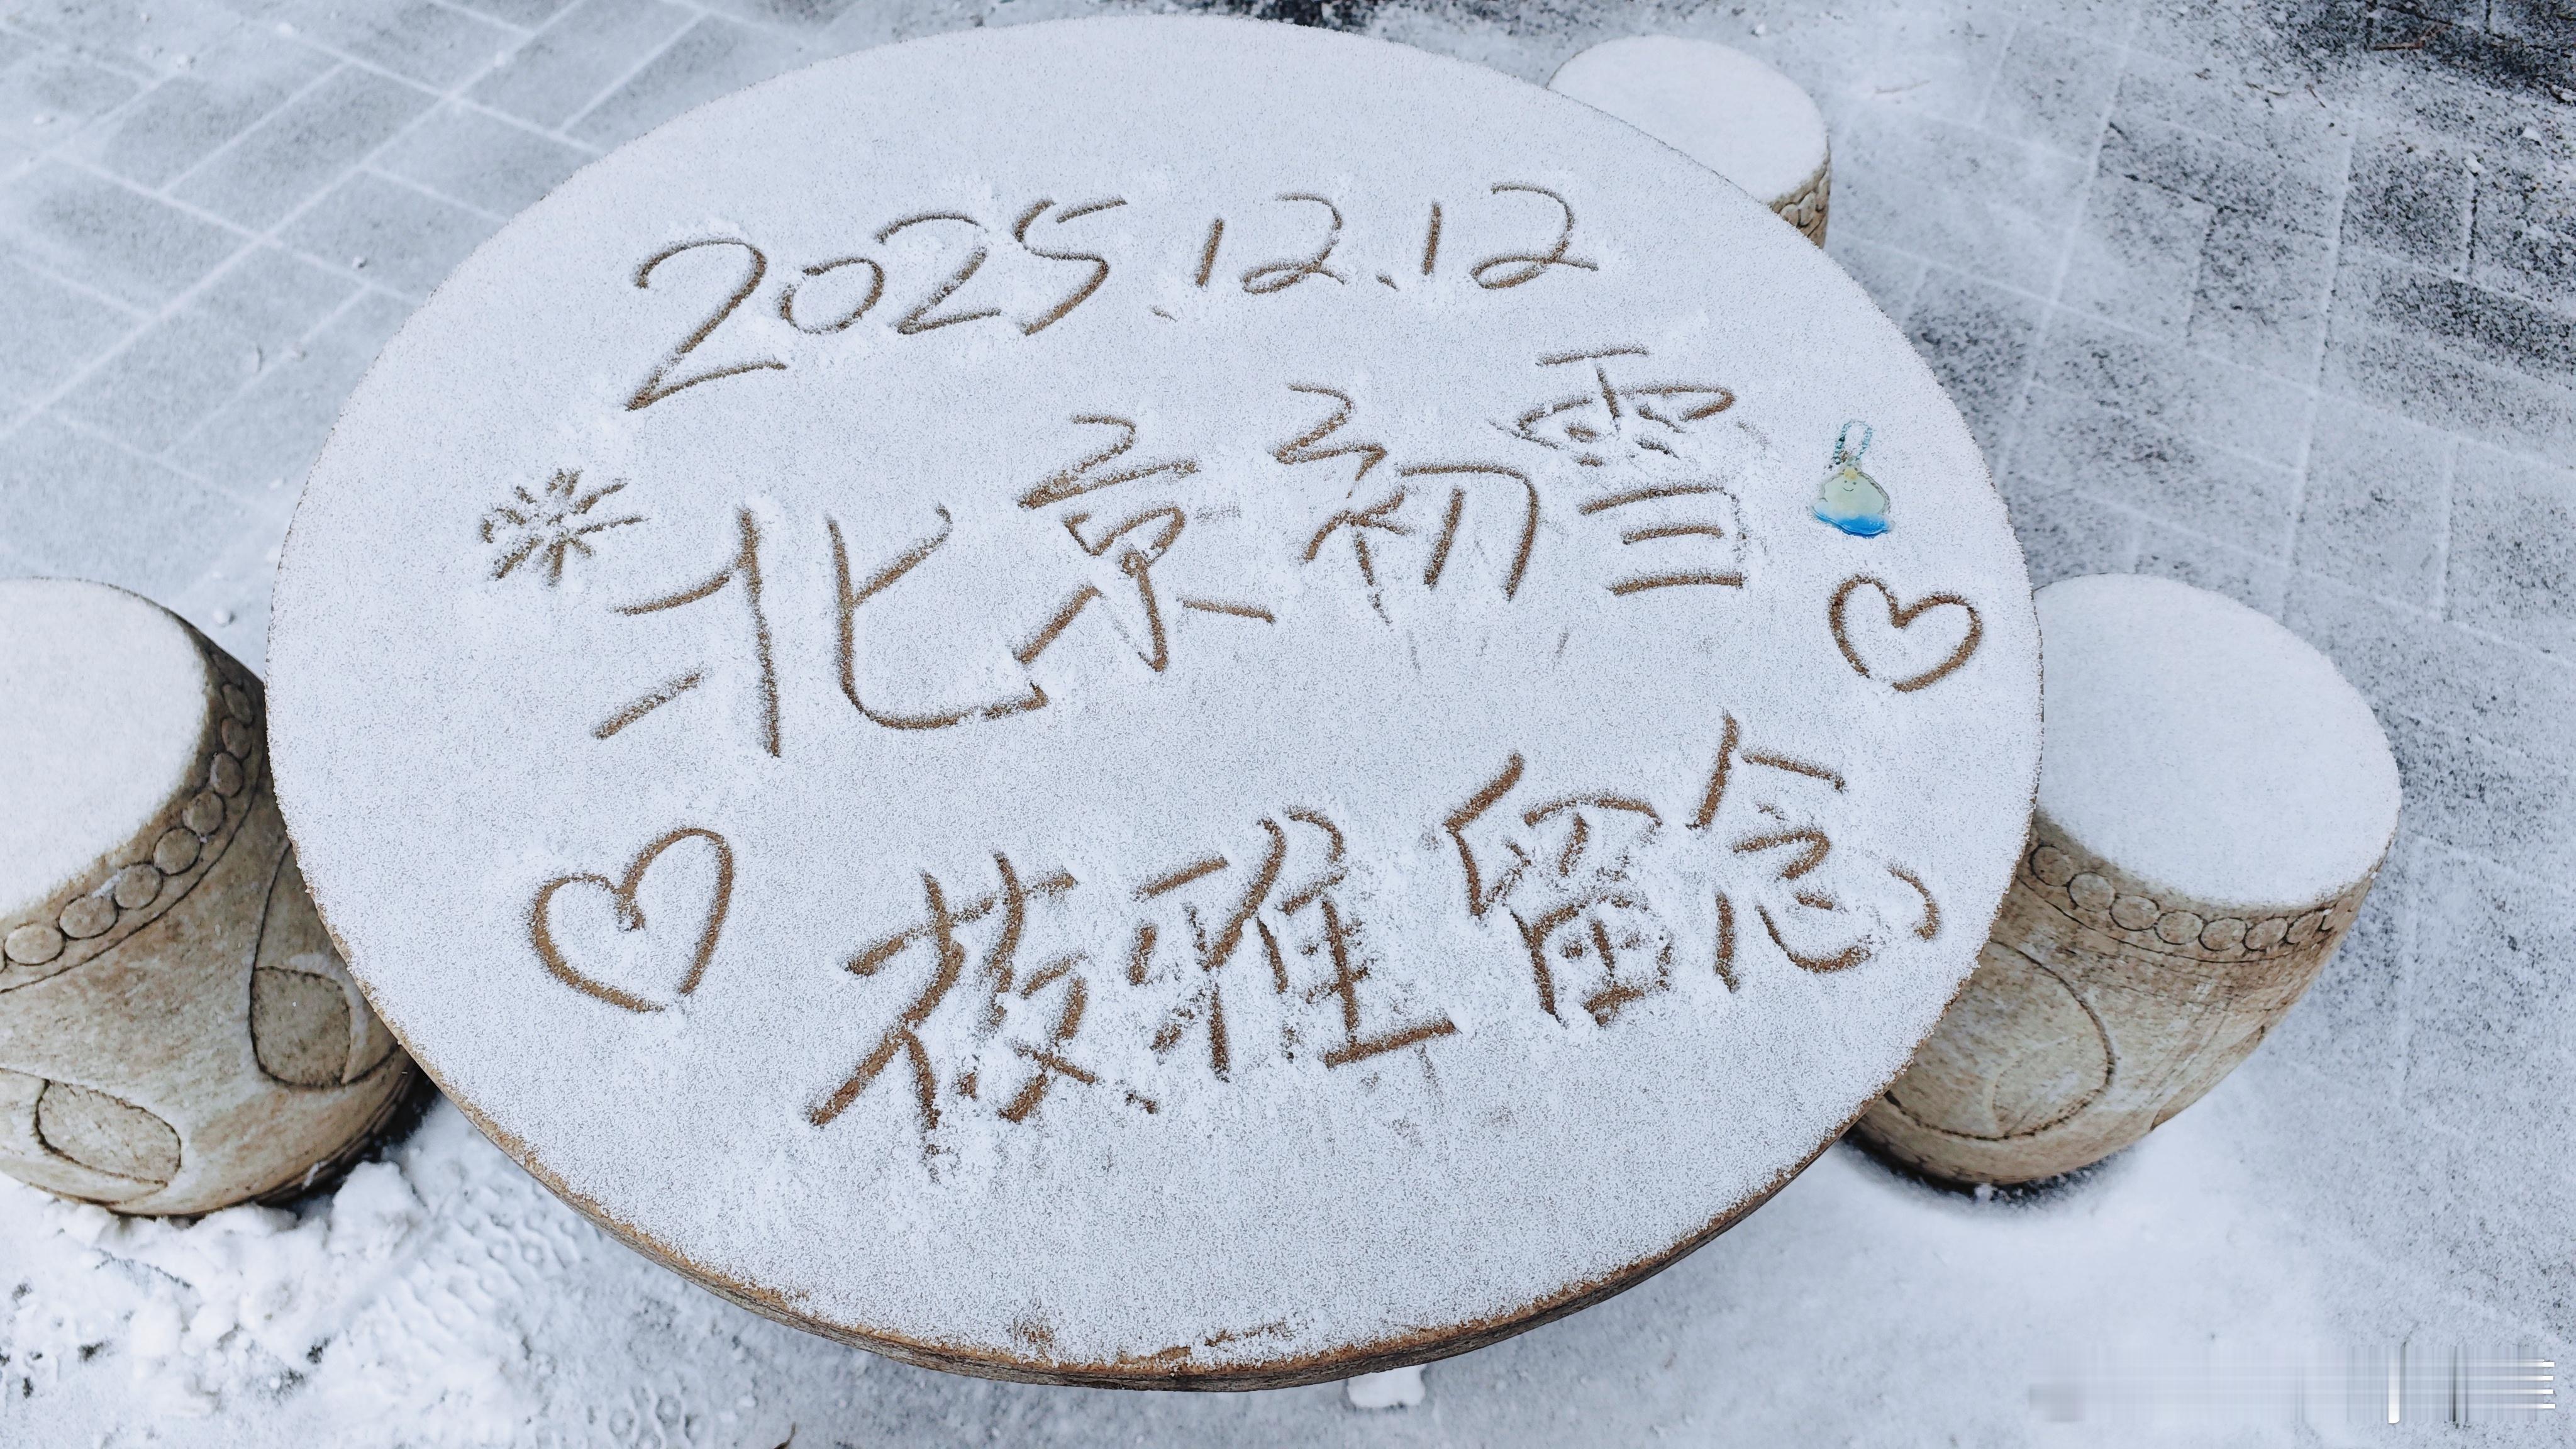 2025.12.12
北京初雪
筱雅留念